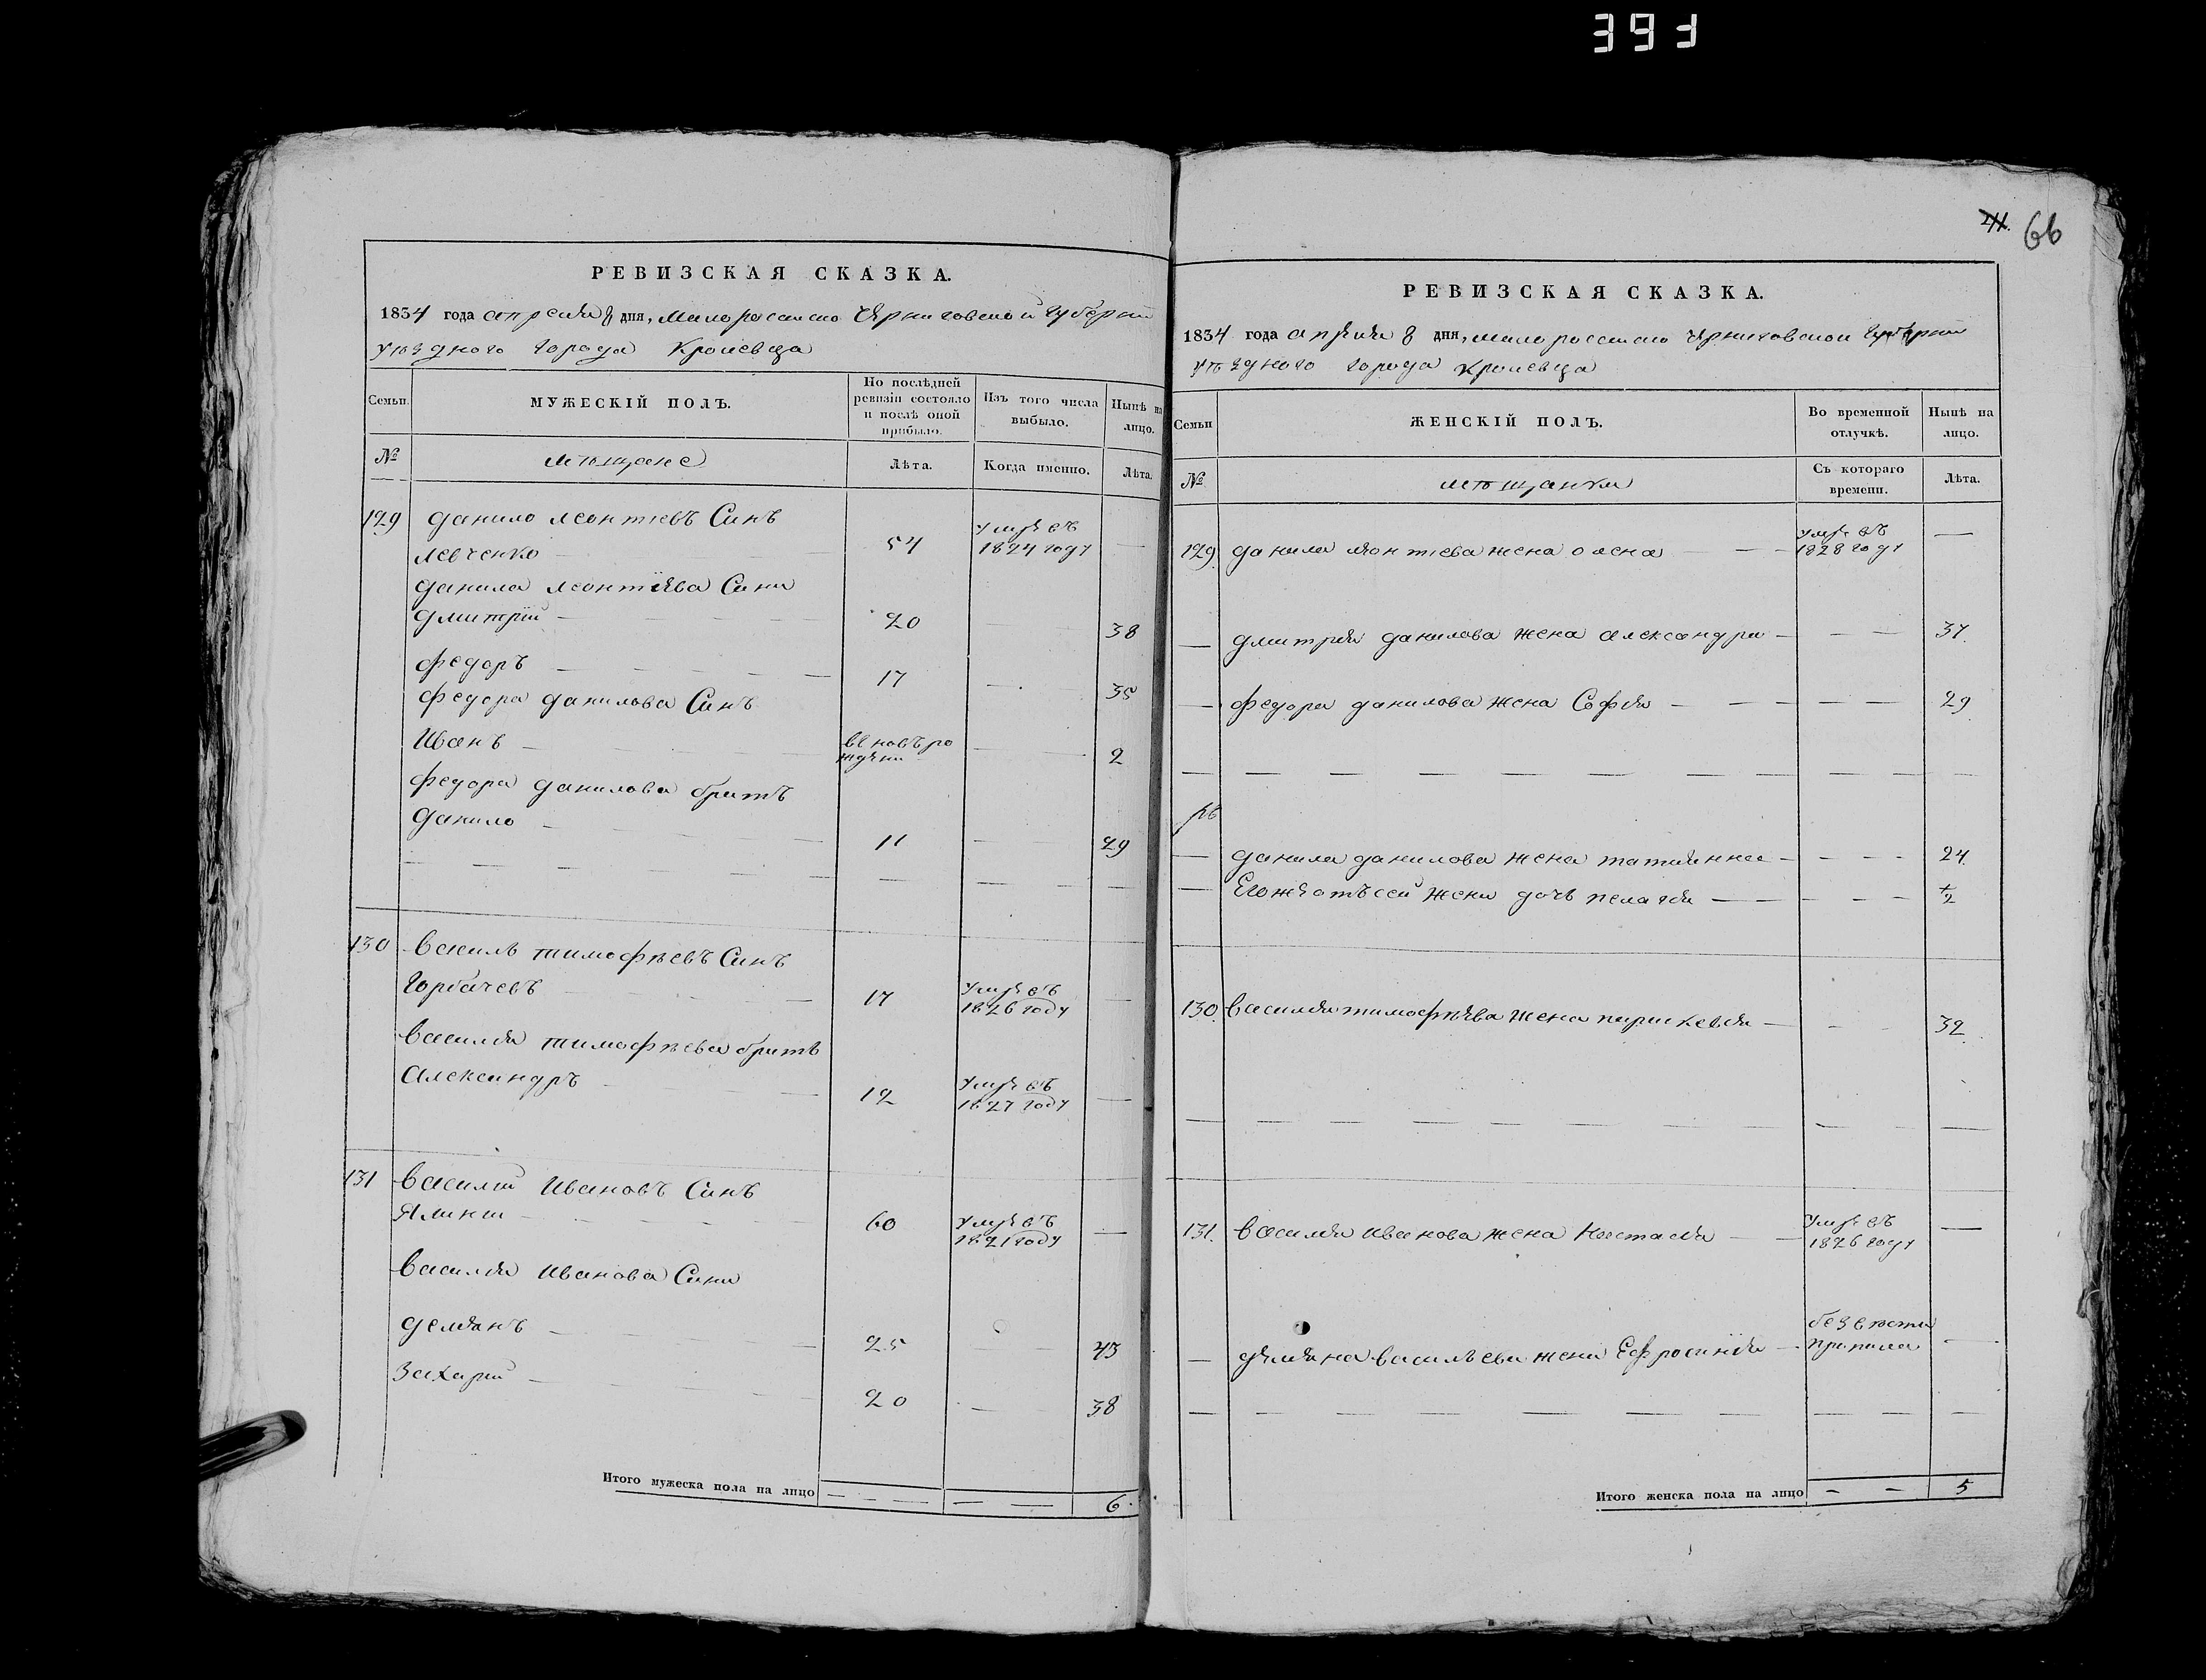 39
41. 66
РЕВИЗСКАЯ СКАЗКА.
1834 года апреля 8 дня, Малороссиско Черниговской губерни
уѣздного города Кролевца
Семьи.
МУЖЕСКІЙ ПОЛЪ.
По послѣдней ревизіи состояло и послѣ оной прибыло.
Изъ того числа выбыло.
Нынѣ на лицо.
№
мѣщане
Лѣта.
Когда именно.
Лѣта.
129 данило леонтіевъ Синъ
левченко — 54 умре въ 1824 году —
данила леонтіева Сини
дмитрій — 20 — 38
федоръ — 17 — 35
федора данилова Синъ
Иванъ — вновъ рожденъ — 2
федора данилова братъ
данило — 11 — 29
130 василь тимофѣевъ Синъ
Горбачевъ — 17 умре въ 1826 году —
василія тимофѣева братъ
Александръ — 12 умре въ 1827 году —
131 василій Ивановъ Синъ
60 умре въ 1821 году —
василія иванова Сини
демянъ — 25 — 43
Захарій — 20 — 38
Итого мужеска пола на лицо — — — — — 6.
РЕВИЗСКАЯ СКАЗКА.
1834 года апреля 8 дня, малороссиско Черниговской Губерни
уѣздного города Кролевца
Семьи
ЖЕНСКІЙ ПОЛЪ.
Во временной отлучкѣ.
Нынѣ на лицо.
№
мѣщанки
Съ котораго времени.
Лѣта.
129. данила леонтіева жена олена — умре въ 1828 году —
— дмитрія данилова жена александра — — — 37.
— федора данилова жена Софія — — — 29
— данила данилова жена татиянна — — — 24.
— Егожъ отъ сей жени дочь пелагія — — — ½
130. василія тимофѣева жена параскевія — — 32
131. василія иванова жена Настасія — умре въ 1826 году —
— демяна василъева жена Ефросинія — безвѣсти пропала —
Итого женска пола на лицо — — 5